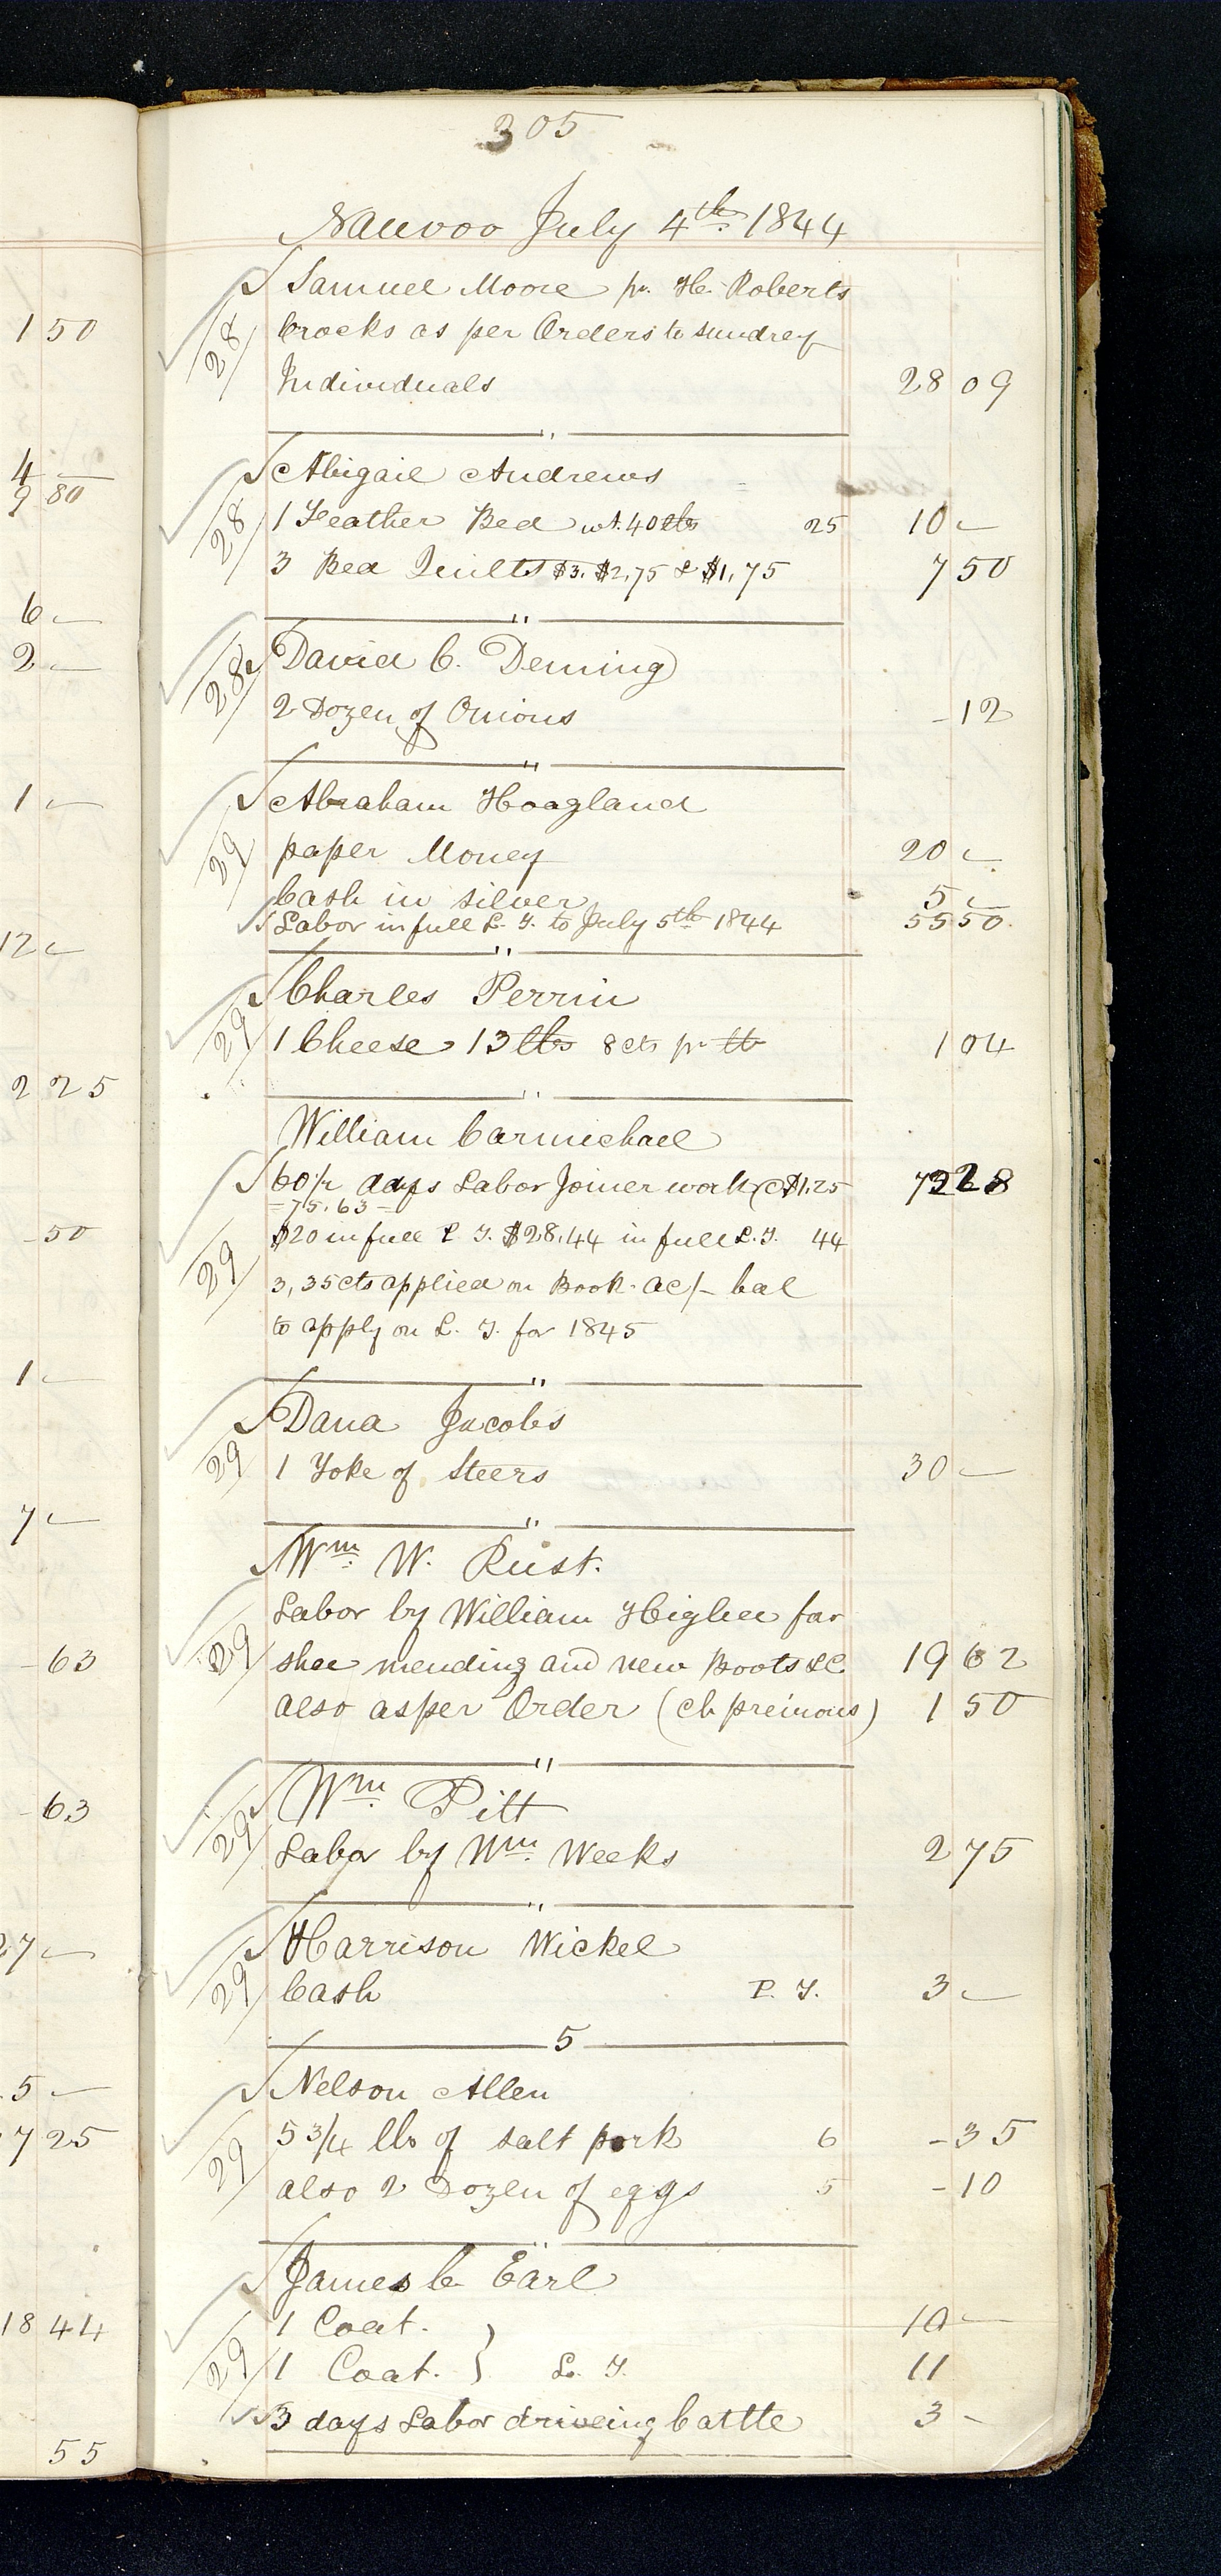 305
Nauvoo July 4th 1844
Samuel Moore pr. H. Roberts
28 Crocks as per Orders to sundrey
Individuals 28 09
"
Abigail Andrews
28 1 Feather Bed wt. 40 lbs 25 10 -
3 Bed Quilts $3. $2,75 & $1,75 7 50
"
David C. Deming
28 2 Dozen of Onions - 12
"
Abraham Hoagland
29 paper Money 20 -
Cash in silver 5 -
Labor in full L. T. to July 5th 1844 55 50.
"
Charles Perrin
29 1 Cheese 13 lbs 8 cts pr lb 1 04
"
William Carmichael
60 1/2 days Labor Joiner work @ $1,25
= 75.63 =
29 $20 in full P. T. $28,44 in full L. T. 44
3,35 cts applied on Book ac/- bal
to apply on L. T. for 1845
"
Dana Jacobs
29 1 Yoke of Steers 30 -
"
Wm W. Rust.
Labor by William Higbee for
29 shoe mending and new Boots &C 19 62
also as per Order (ch previous) 1 50
"
Wm Pitt
29 Labor by Wm Weeks 2 75
"
Harrison Wickel
29 Cash P. T. 3 -
5
Nelson Allen
29 5 3/4 lbs of salt pork 6 - 35
also 2 Dozen of eggs 5 - 10
"
James C. Earl
1 Coat. 10 -
29 1 Coat. } L. T. 11
3 days Labor driveing Cattle 3 -
1 50
4 -
9 80
6 -
2 -
1 -
12 -
2 25
- 50
1 -
7 -
- 63
- 63
27 -
5 -
7 25
18 44
55